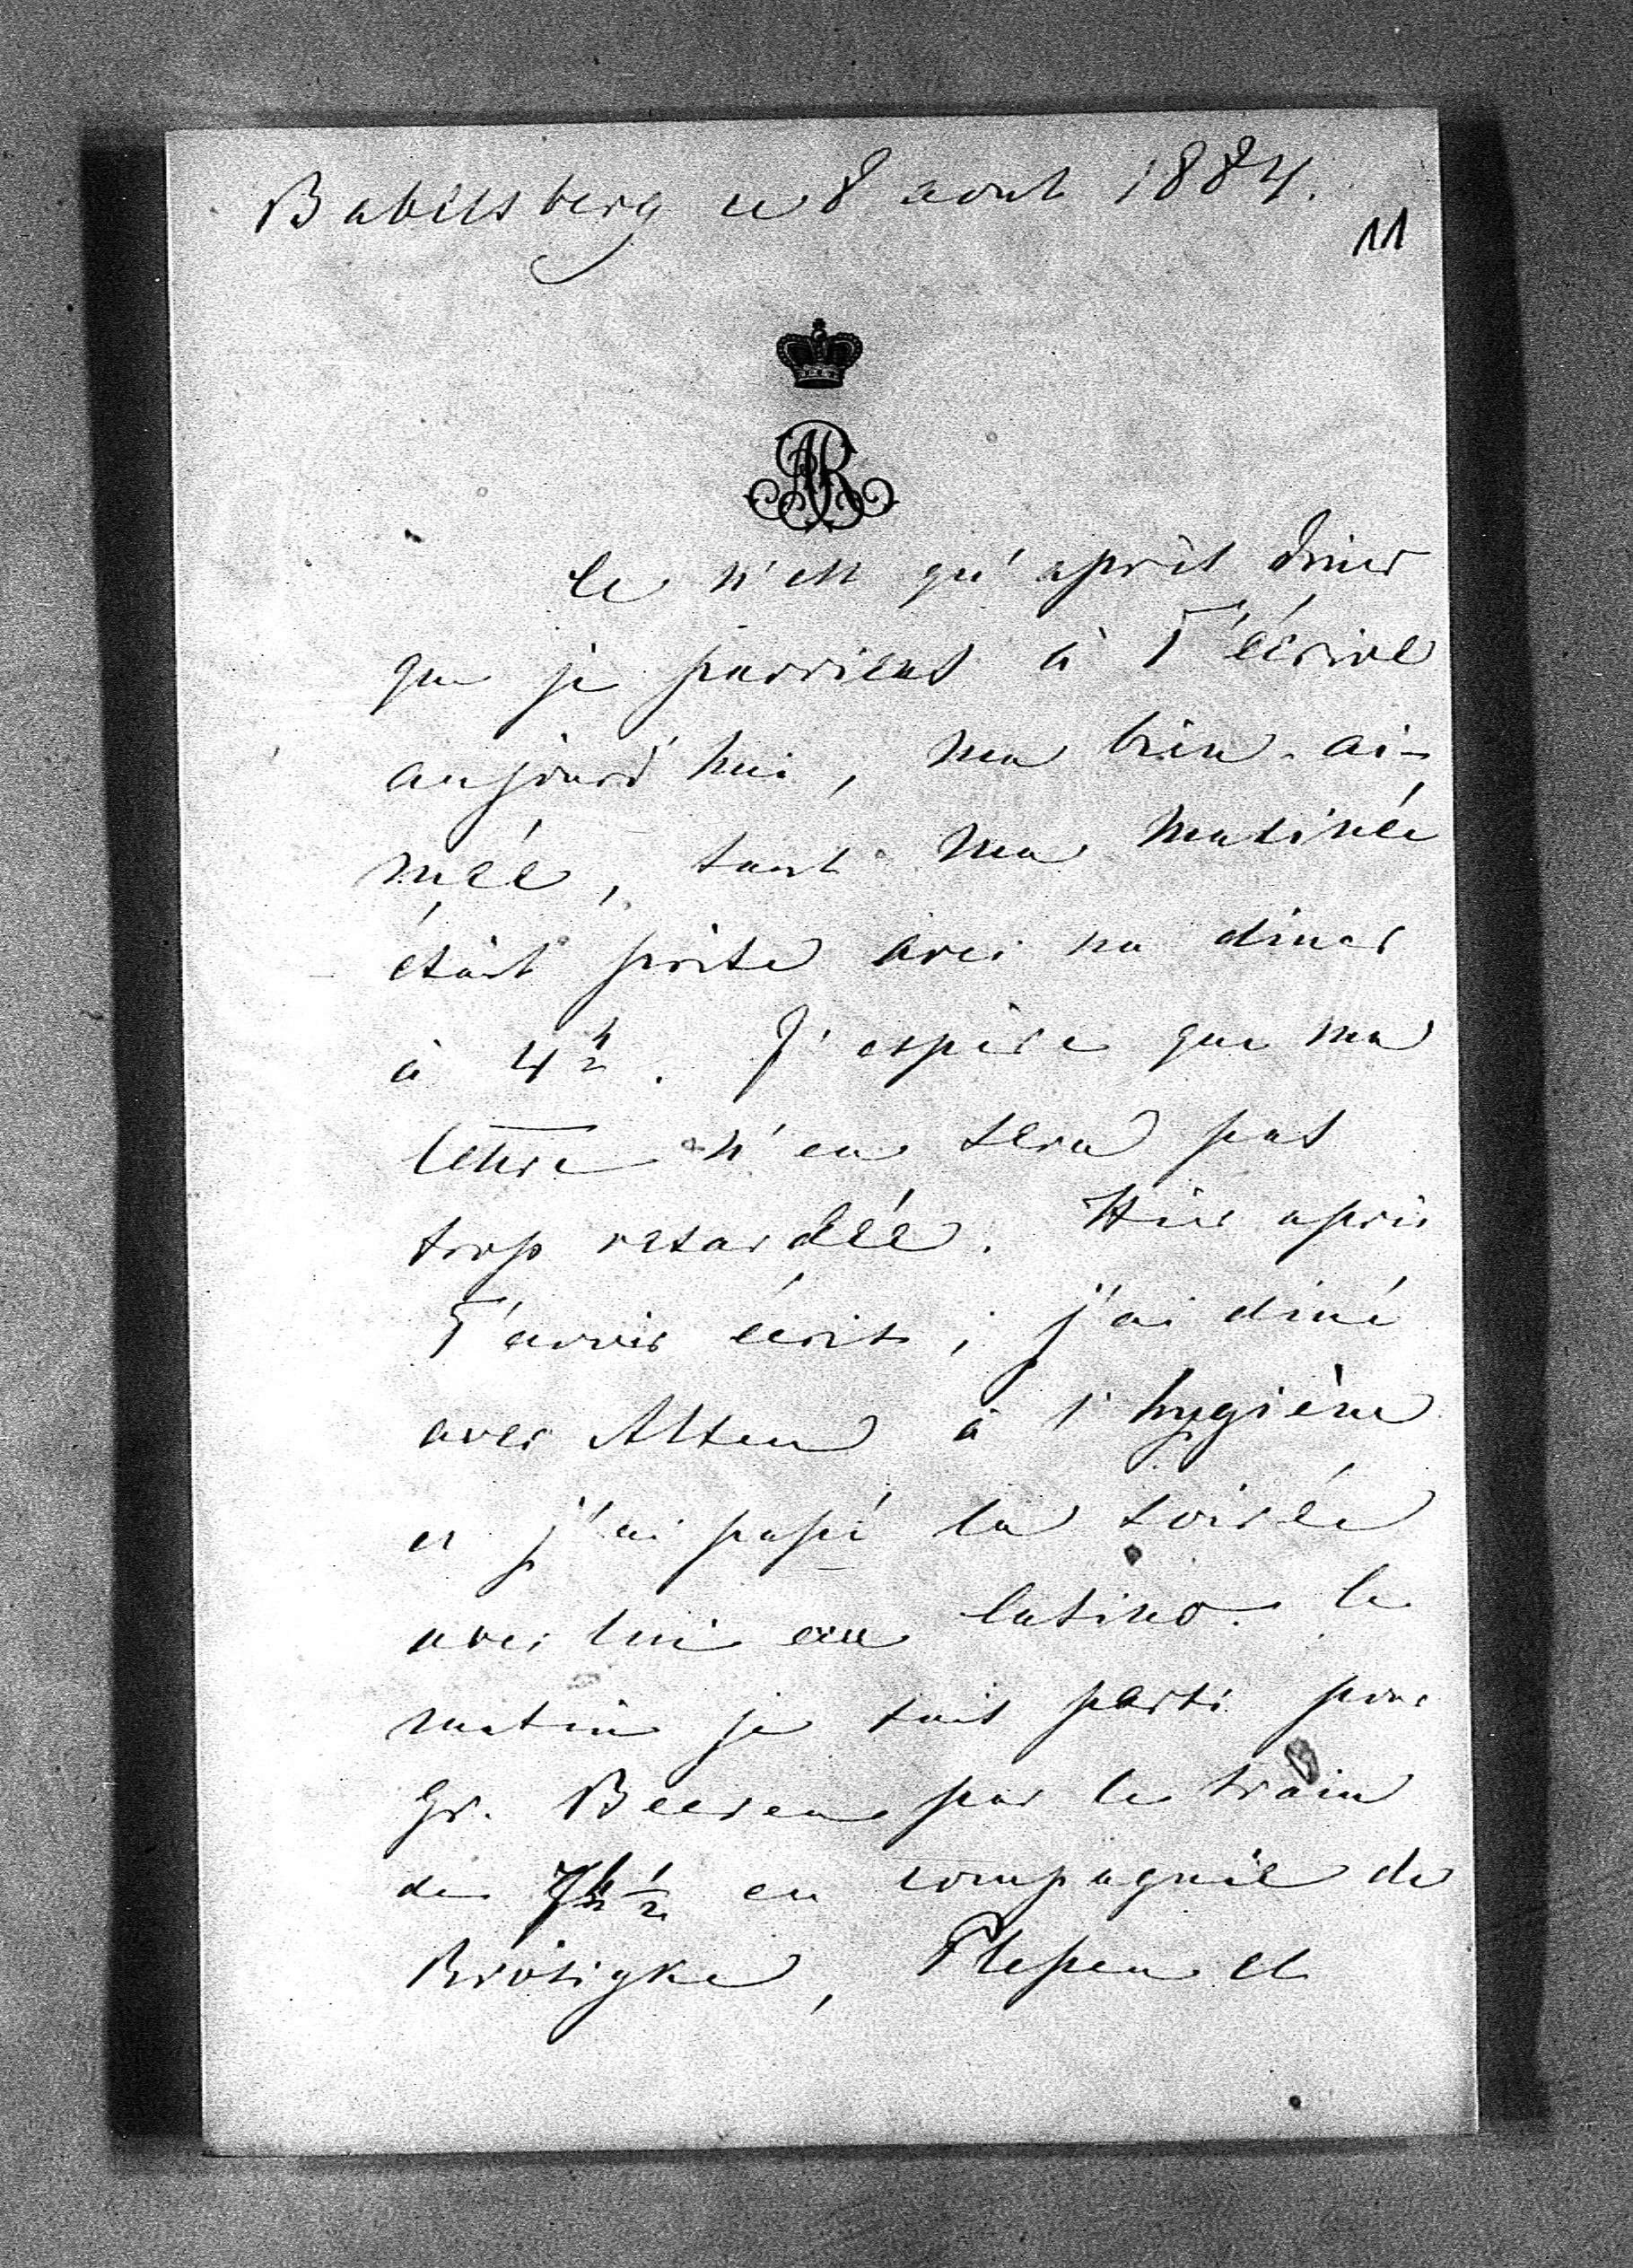 Babelsberg ce 8 aout 1884.
11
AR
Ce n'est qu'après diner
que je parviens à T'écrire
aujourd'hui, ma bien-ai-
mée, tant ma matinée
était prise avec un diner
à 4h. J'espère que ma
lettre n'en sera pas
trop retardée. Hier après
T'avoir écrit, j'ai diné
avec Alten à l'hygiène
et j'ai passé la soirée
avec lui au Casino. Ce
matin je suis parti pour
Gr. Beeren par le train
de 7h ½ en compagnie de
Brösigke, Plessen et